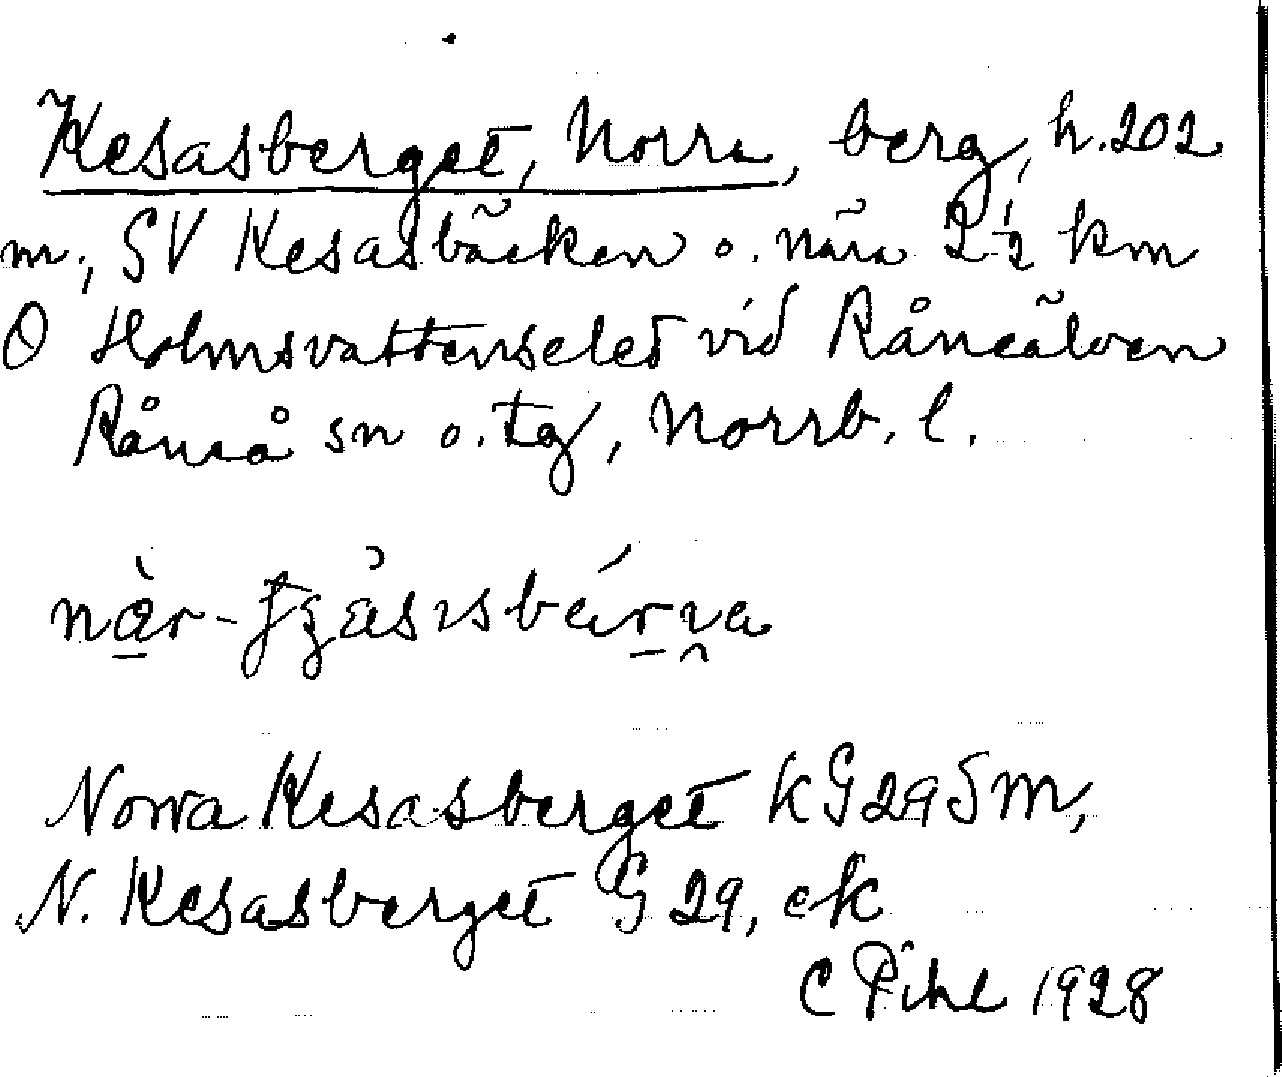 Kesasberget, Norra, berg, h. 202
m; SV Kesasbäcken o. nära 2½ km
O Holmsvattenselet vid Råneälven
Råneå sn o. tg, Norrb. l.
Norra Kesasberget KG29SM,
N. Kesasberget G 29, ek
C Pihl 1928